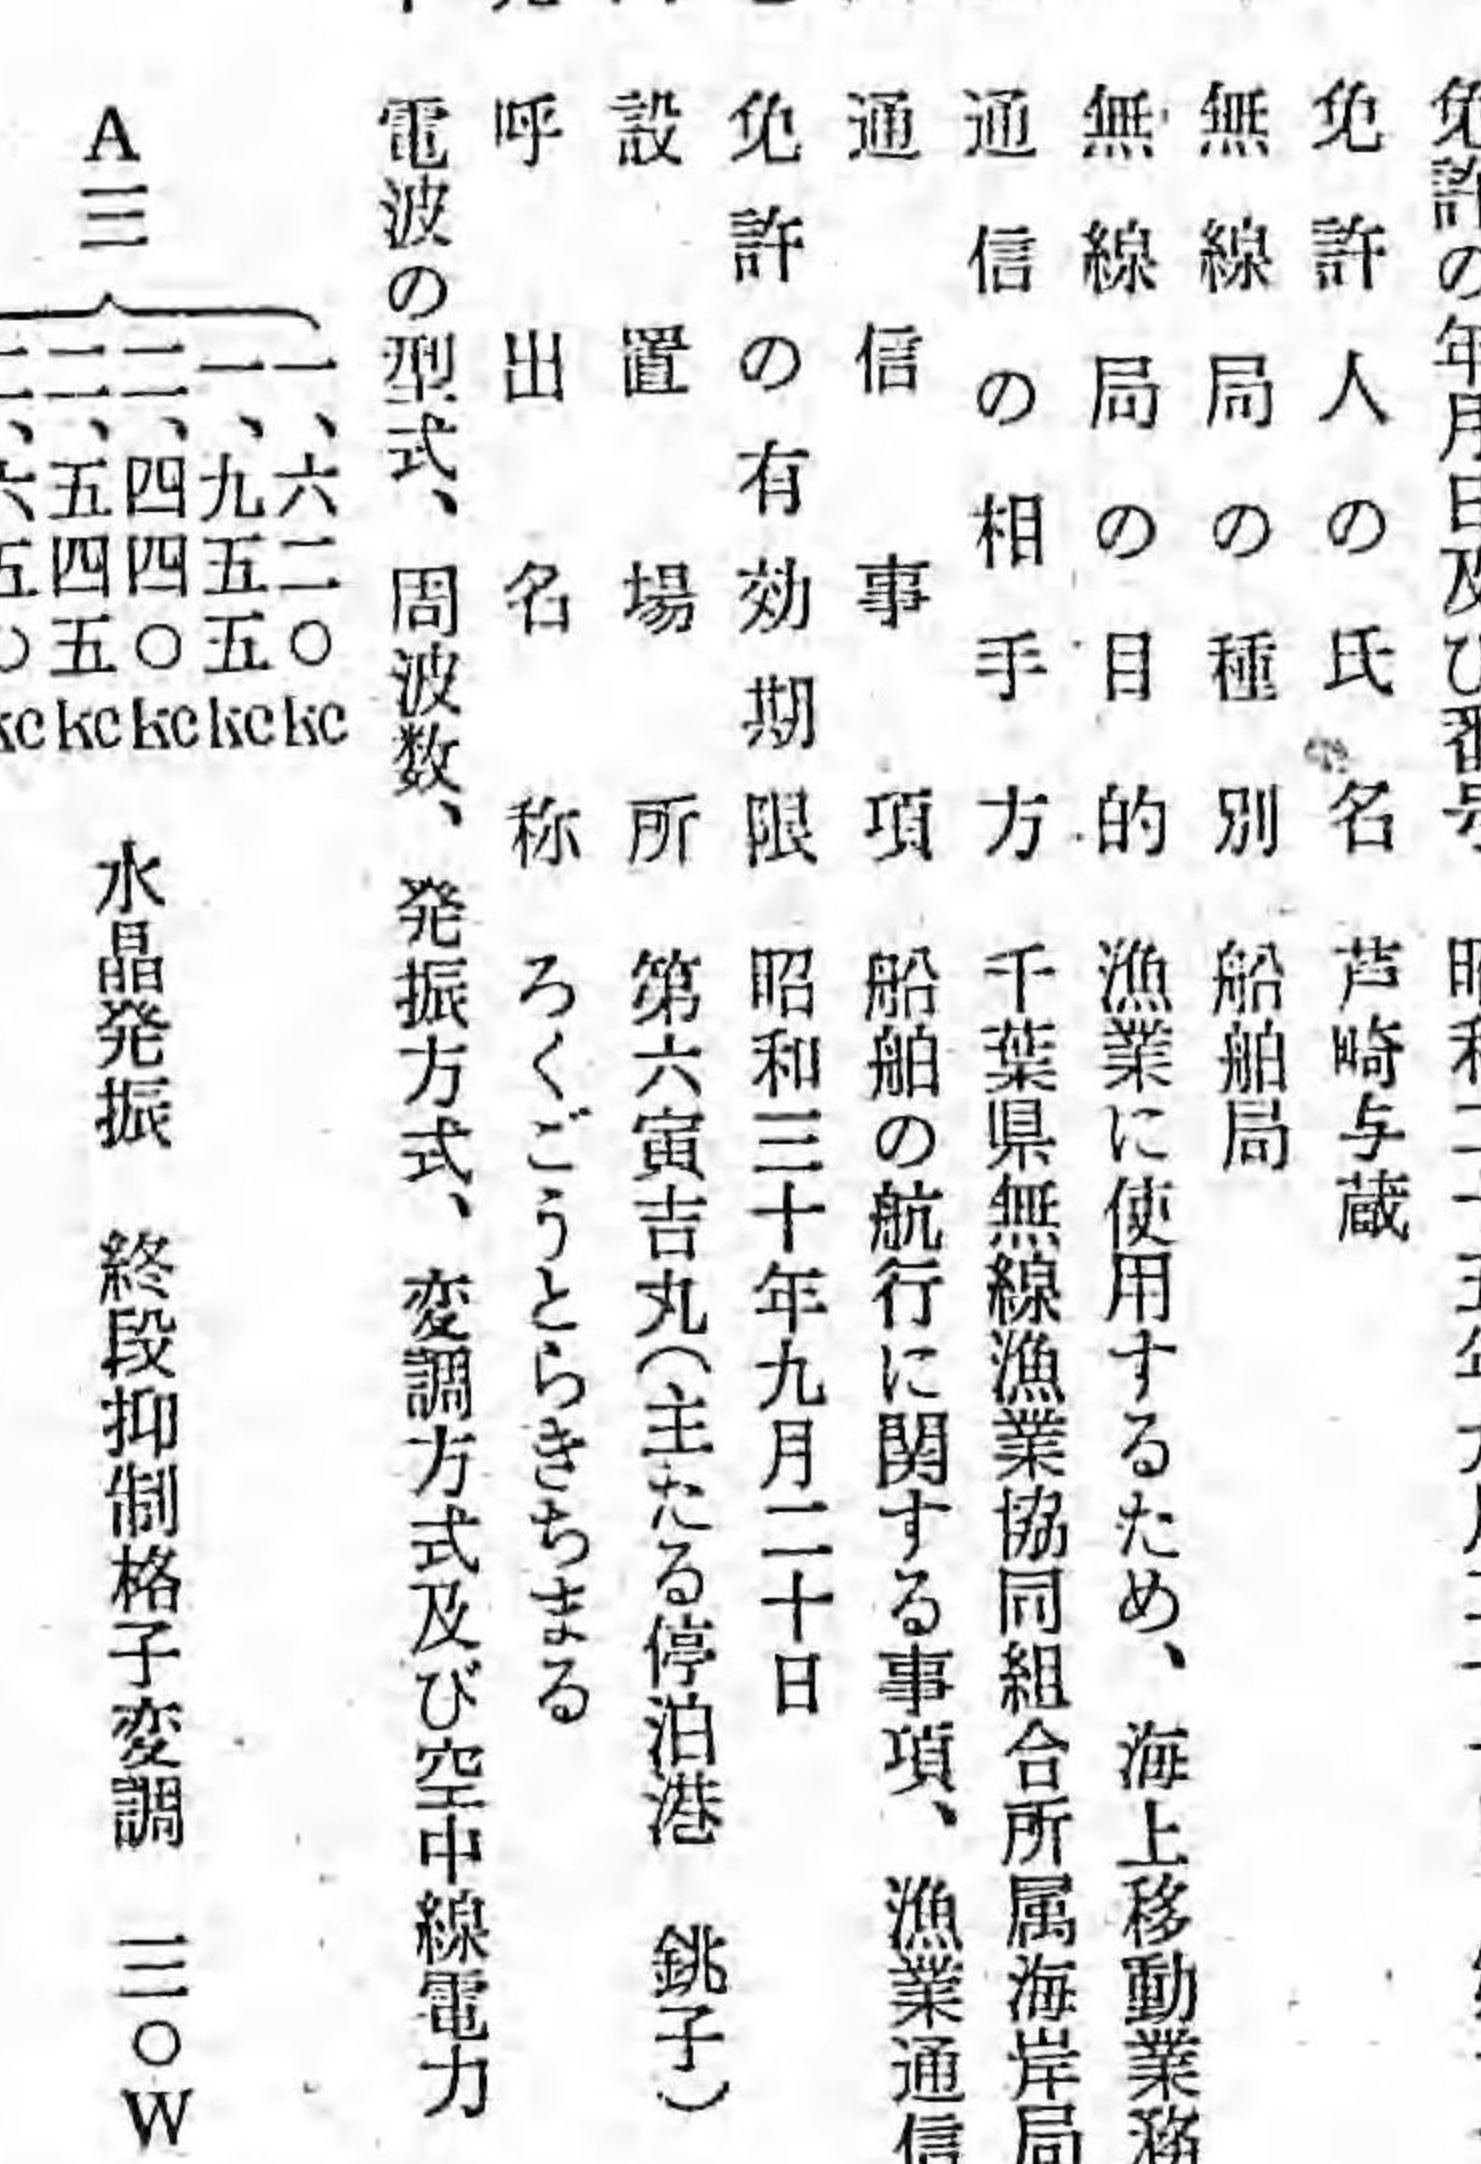 免許の年月日及び番号　昭和二十五年
免許人の氏名　芦崎与蔵
無線局の種別　船舶局
無線局の目的　漁業に使用するため、海上移動業務
通信の相手方　千葉県無線漁業協同組合所属海岸局
通信事項　船舶の航行に関する事項、漁業通信
免許の有効期限　昭和三十年九月二十日
設置場所　第六寅吉丸（主たる停泊港　銚子）
呼出名称　ろくごうとらきちまる
電波の型式、周波数、発振方式、変調方式及び空中線電力
一、六二〇kc
一、九五五kc
二、四四〇kc
A三　二、五四五kc　水晶発振　終段抑制格子変調　三〇W
二、六五〇kc